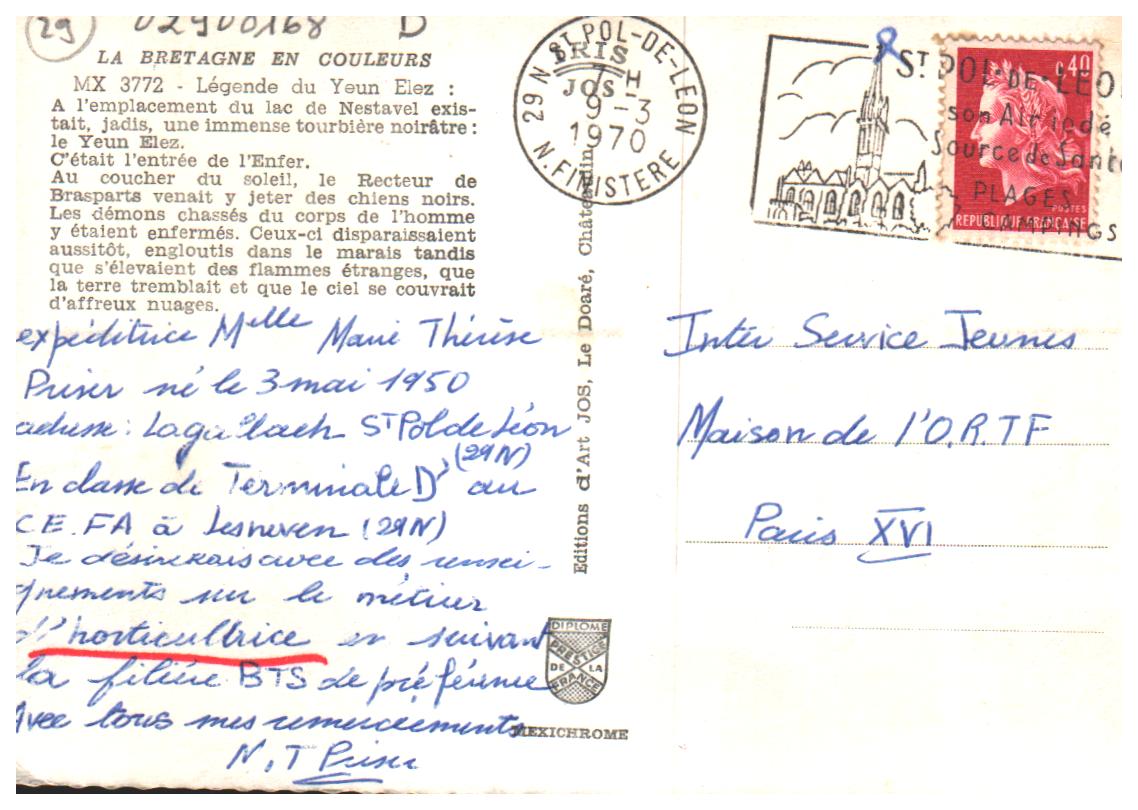 29 02900168 D
LA BRETAGNE EN COULEURS
MX 3772 - Légende du Yeun Elez :
A l'emplacement du lac de Nestavel exis-
tait, jadis, une immense tourbière noirâtre :
le Yeun Elez.
C'était l'entrée de l'Enfer.
Au coucher du soleil, le Recteur de
Brasparts venait y jeter des chiens noirs.
Les démons chassés du corps de l'homme
y étaient enfermés. Ceux-ci disparaissaient
aussitôt, engloutis dans le marais tandis
que s'élevaient des flammes étranges, que
la terre tremblait et que le ciel se couvrait
d'affreux nuages.
expéditrice Melle Marie Thérèse
Priser né le 3 mai 1950
adresse : Lagatlach St Pol de Léon
(29N)
En classe de Terminale D' au
C.E.FA à Lesneven (29N)
Je désirerais avec des rensei-
gnements sur le métier
d'horticultrice en suivant
la filière BTS de préférence
Avec tous mes remerciements
Priser
Editions d'Art JOS, Le Doaré, Châteaulin
JOS
29 N ST POL-DE-LEON
H
9-3
1970
N. FINISTERE
ST POL-DE-LEON
son Air iodé
Source de Santé
PLAGES
CAMPINGS
0,40
POSTES
REPUBLIQUE FRANÇAISE
Inter Service Jeunes
Maison de l'O.R.T.F
Paris XVI
DIPLOME
PRESTIGE
DE LA
FRANCE
MEXICHROME